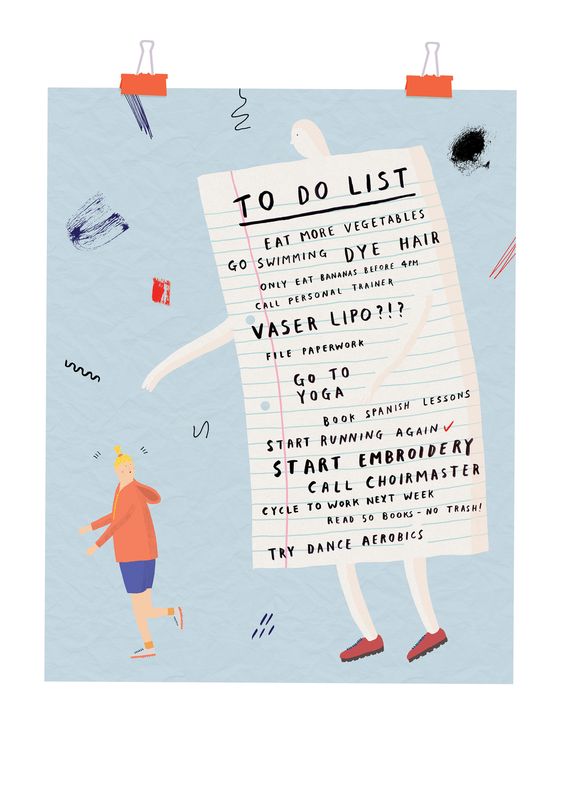 TO DO LIST
EAT MORE VEGETABLES
GO SWIMMING DYE HAIR
ONLY EAT BANANAS BEFORE 4PM
CALL PERSONAL TRAINER
VASER LIPO?!?
FILE PAPERWORK
GO TO
YOGA
BOOK SPANISH LESSONS
START RUNNING AGAIN ✓
START EMBROIDERY
CALL CHOIRMASTER
CYCLE TO WORK NEXT WEEK
READ 50 BOOKS - NO TRASH!
TRY DANCE AEROBICS